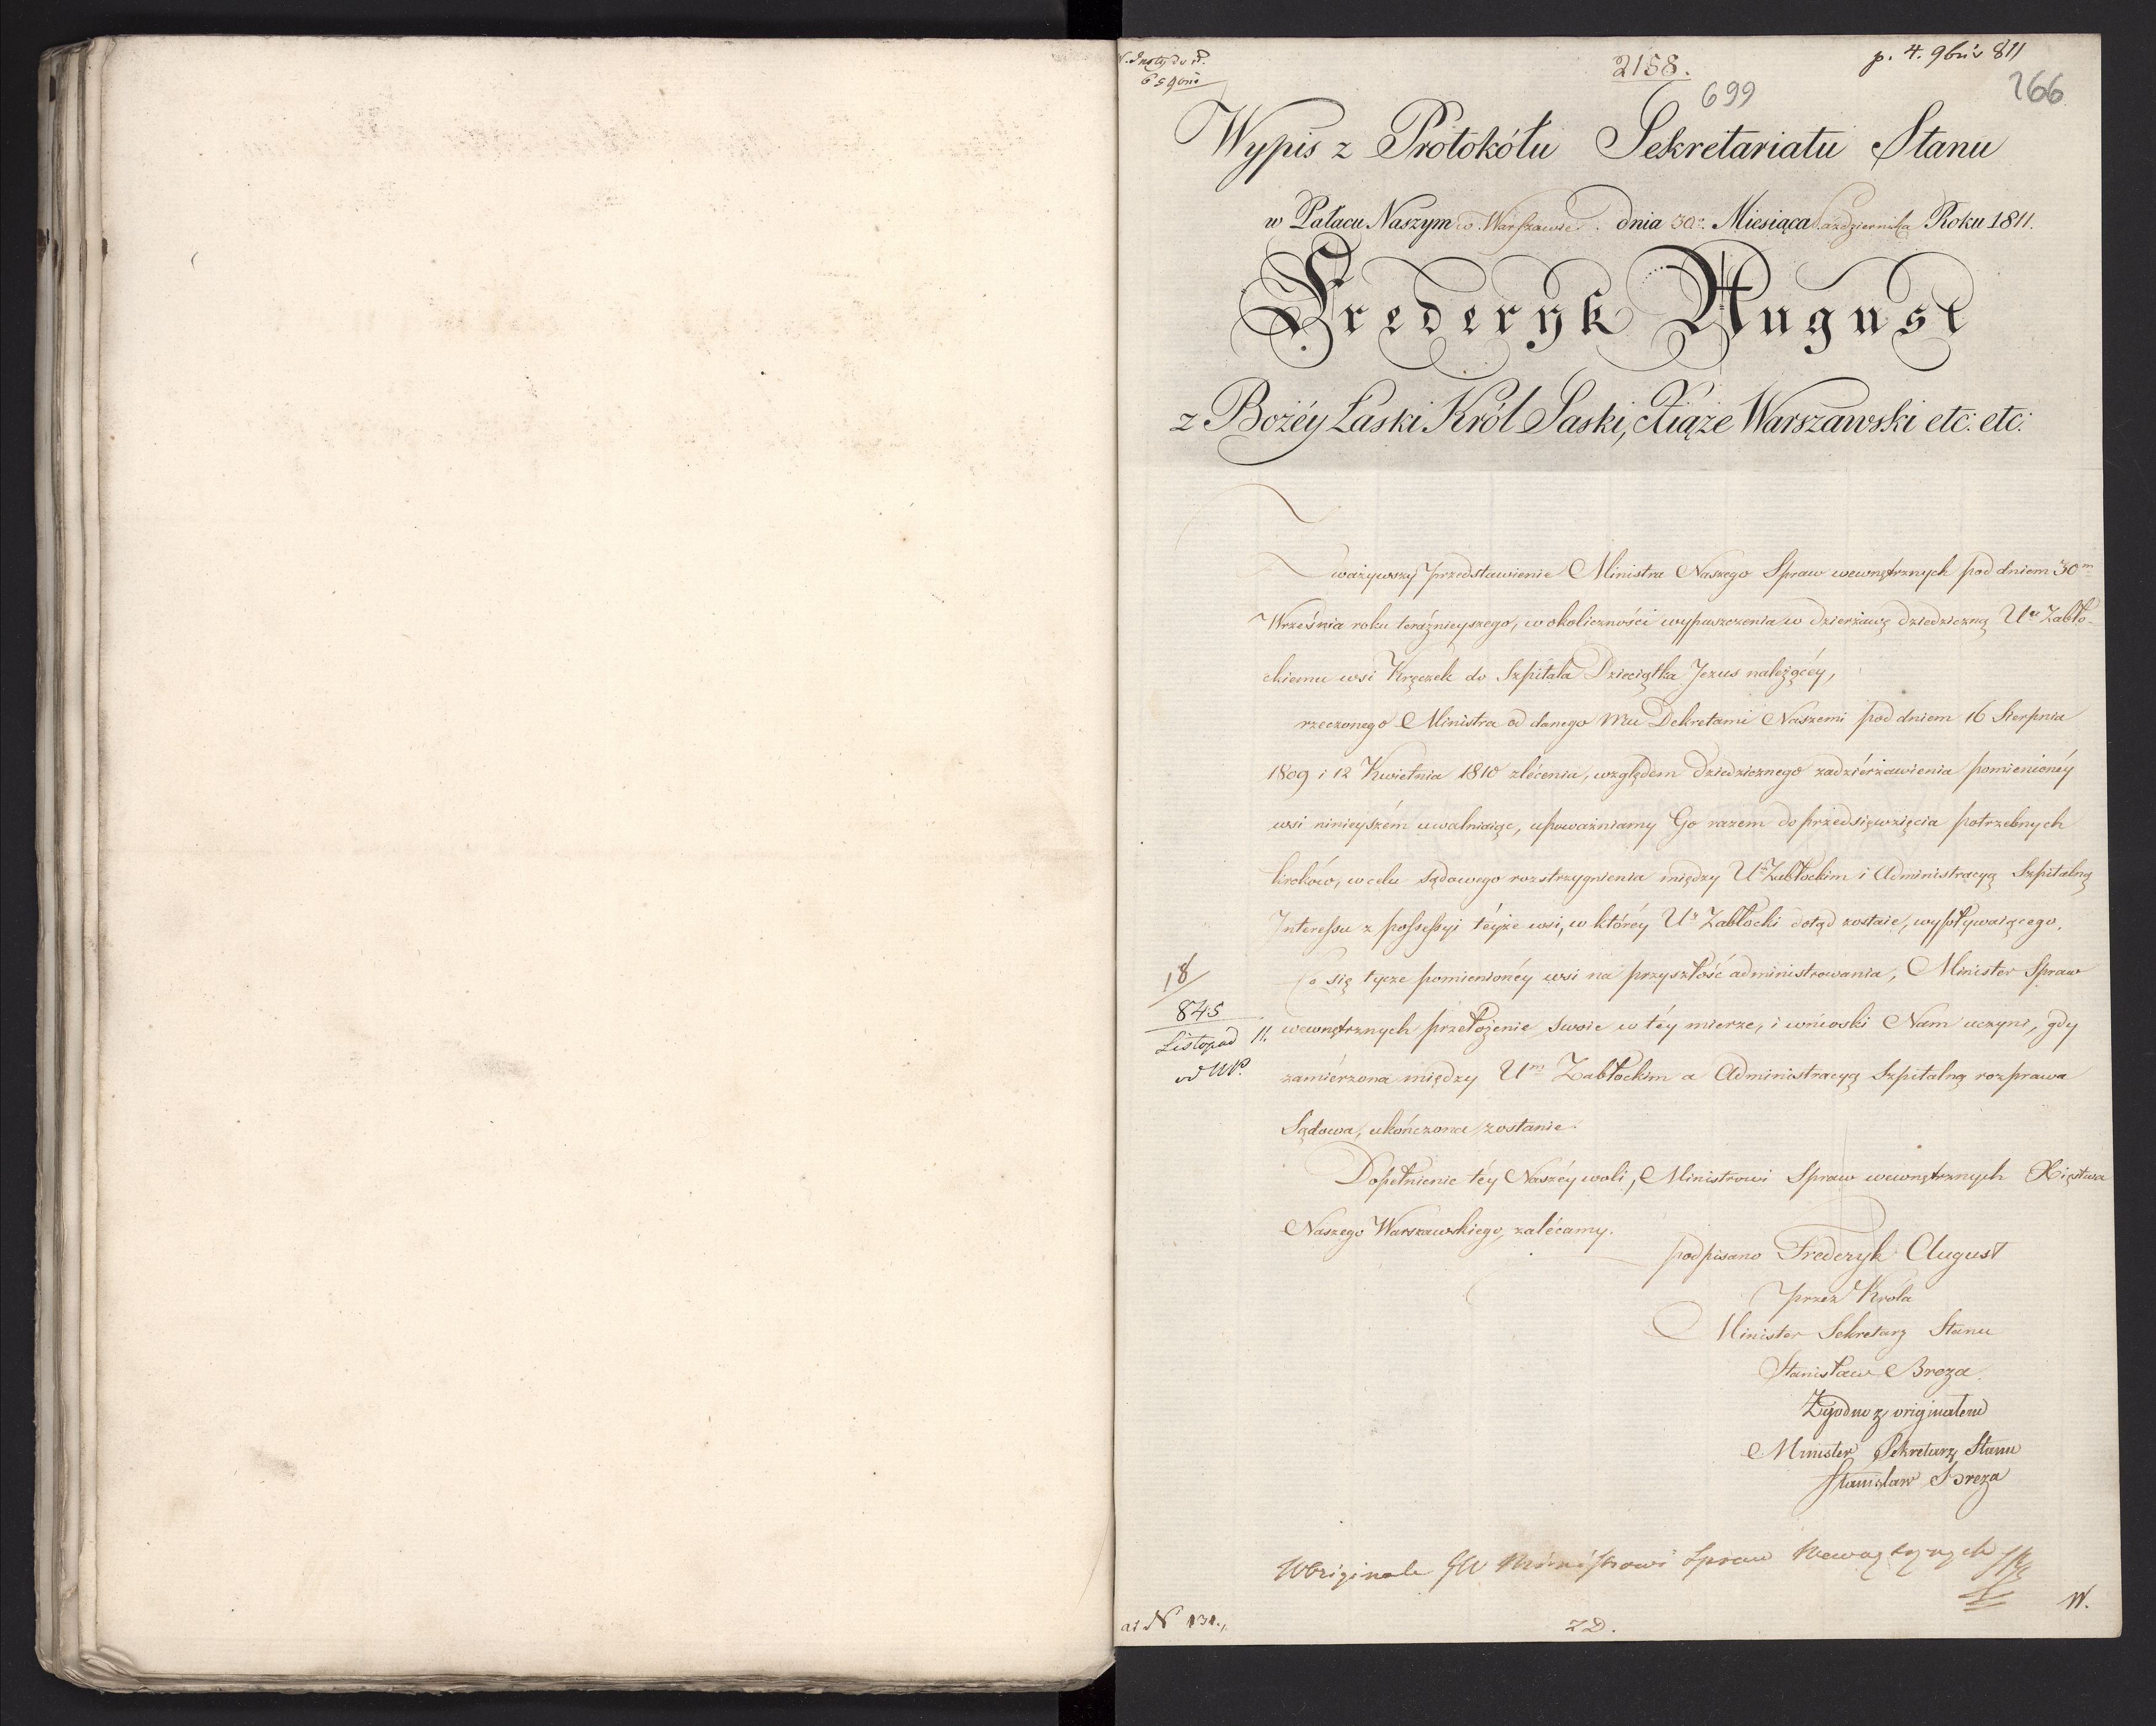 2158.
p. 4. 9bris 811
699
266
Wypis z Protokółu Sekretariatu Stanu
w Pałacu Naszym w Warszawie. dnia 30. Miesiąca Października Roku 1811.
Frederyk August
z Bożéy Łaski Król Saski, Xiąże Warszawski etc: etc:
Zważywszy przedstawienie Ministra Naszego Spraw wewnętrznych pod dniem 30m
Września roku teraźnieyszego, w okoliczności wypuszczenia w dzierżawę dziedziczną Uu Zabło-
ckiemu wsi Kręczek do Szpitala Dzieciątka Jezus należącéy,
rzeczonego Ministra od danego mu Dekretami Naszemi pod dniem 16 Sierpnia
1809 i 12 Kwietnia 1810 zlécenia, względem dziedzicznego zadziérżawienia pomienionéy
wsi ninieyszém uwalniaiąc, upoważniamy Go razem do przedsięwzięcia potrzebnych
kroków, w celu sądowego rozstrzygnienia między Um Zabłockim i Administracyą Szpitalną
Interessu z possessyi téyże wsi, w któréy Ur Zabłocki dotąd zostaie, wypływaiącego.
Co się tycze pomienionéy wsi na przyszłość administrowania, Minister Spraw
wewnętrznych przełożenie swoie w téy mierze, i wnioski Nam uczyni, gdy
zamiérzona między Um Zabłockim a Administracyą Szpitalną rozprawa
Sądowa, ukończona zostanie.
18
845
Listopad 11.
od MP.
Dopełnienie téy Naszéy woli, Ministrowi Spraw wewnętrznych Xięstwa
Naszego Warszawskiego, zalécamy.
podpisano Frederyk August
przez Króla
Minister Sekretarz Stanu
Stanisław Breza.
Zgodno z originałem
Minister Sekretarz Stanu
Stanisław Breza
W Originale JW Ministrowi Spraw Wewnętrznych
W.
ad N 131.
ZD.